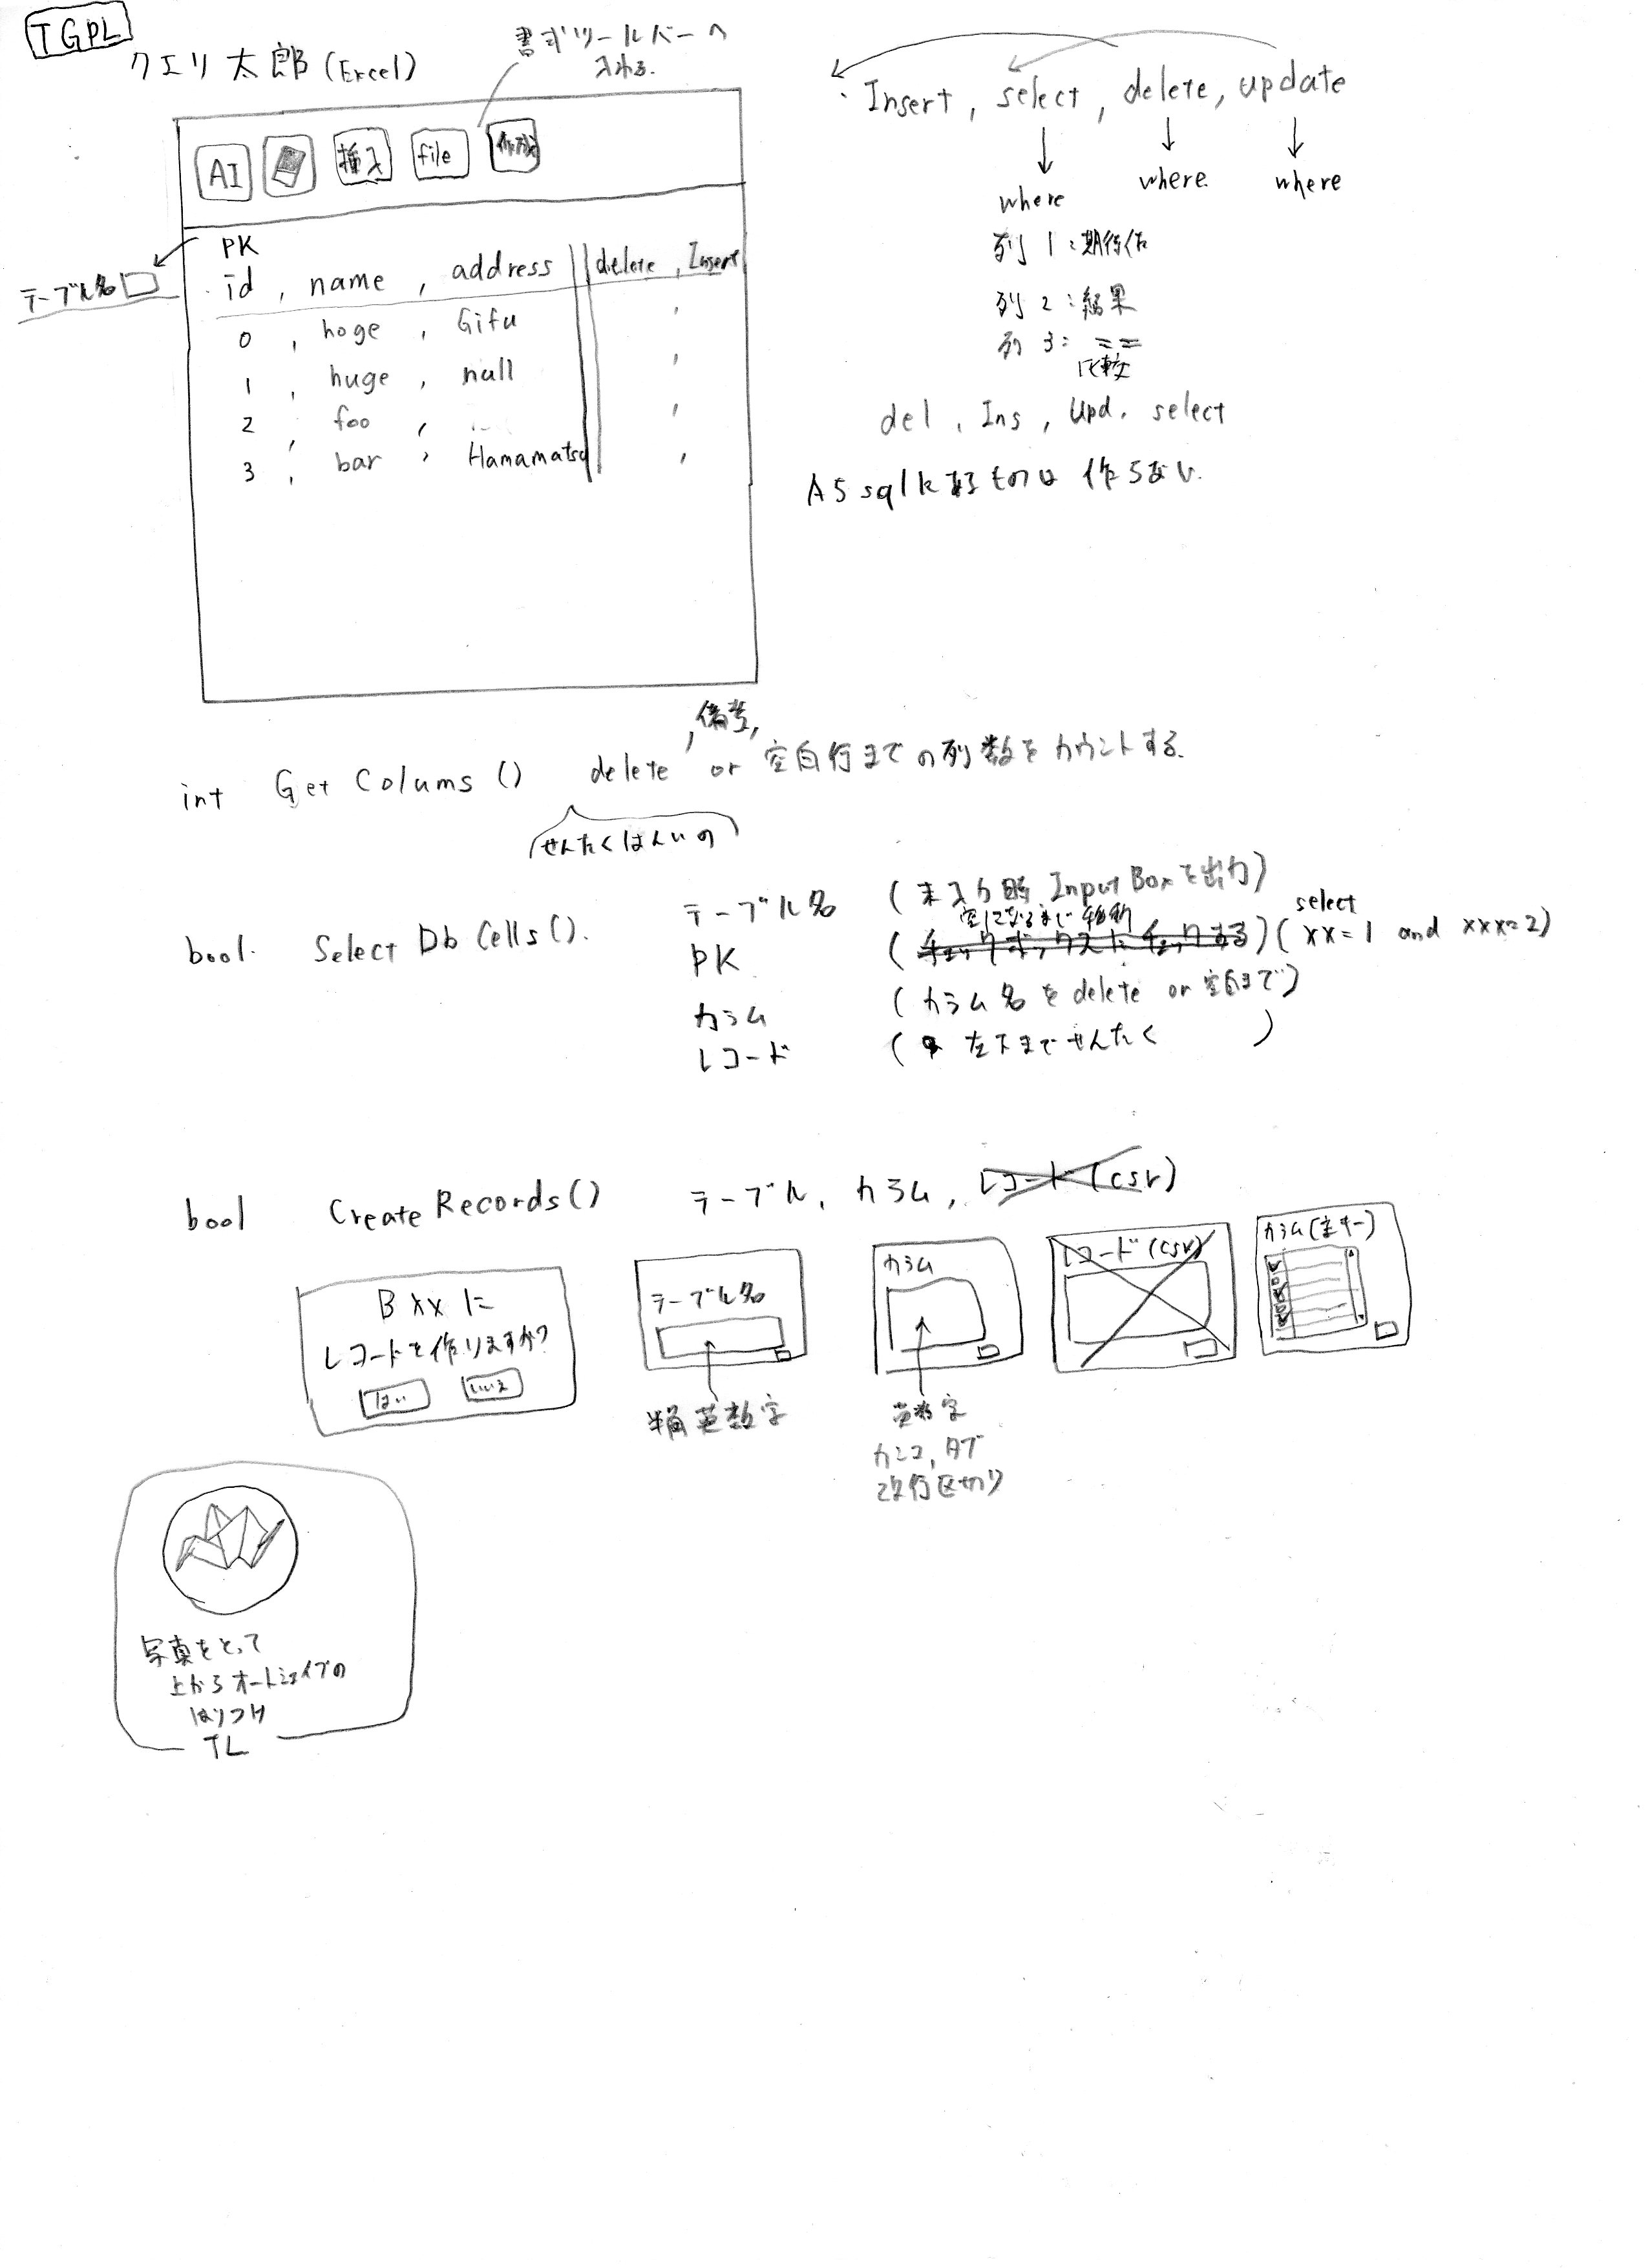 TGPL
クエリ太郎 (Excel)
書式ツールバーへ
入れる.
AI 挿入 file 作成
PK
テーブル名
id , name , address delete , Insert
0 , hoge , Gifu ,
1 , huge , null ,
2 , foo , ,
3 , bar , Hamamatsu ,
・Insert , select , delete, update
where where. where
列 1 : 期待値
列 2 : 結果
列 3 : ==
比較
del , Ins , Upd. select
A5 sqlに
ものは 作らない.
int Get Colums () delete , 備考, or 空白行までの列数をカウントする.
せんたくはんいの
bool. Select Db Cells().
テーブル名 (未入力時 Input Boxを出力)
空になるまで
PK (チェックボックスにチェックする) (select xx=1 and xxx=2)
カラム (カラム名をdelete or 空白まで)
レコード ( 左下までせんたく )
bool Create Records() テーブル, カラム, レコード (csv)
B xx に
レコードを作りますか?
はい いいえ
テーブル名
半角英数字
カラム
英数字
カンマ, タブ
改行区切り
レコード (csv)
カラム(主キー)
写真をとって
上からオートシェイプの
はりつけ
TL